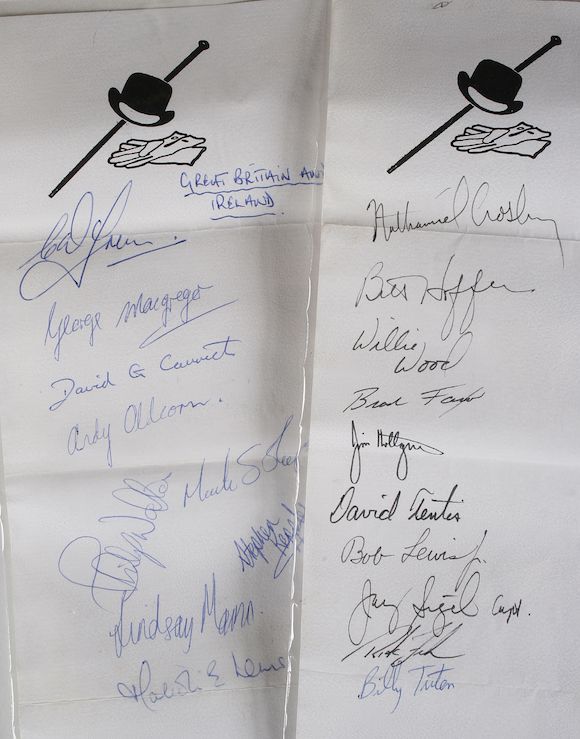 GREAT BRITAIN AND
IRELAND.
George Macgregor
David G Carrick
Andy Oldcorn.
Philip Walton
Stephen Keppler
Lindsay Mann.
Malcolm E Lewis
Nathaniel Crosby
Bill Hoffer
Willie
Wood
Brad Faxon
Jim Holtgrieve
David Tentis
Bob Lewis Jr.
Jay Sigel Capt.
Rick Fehr
Billy Tuten